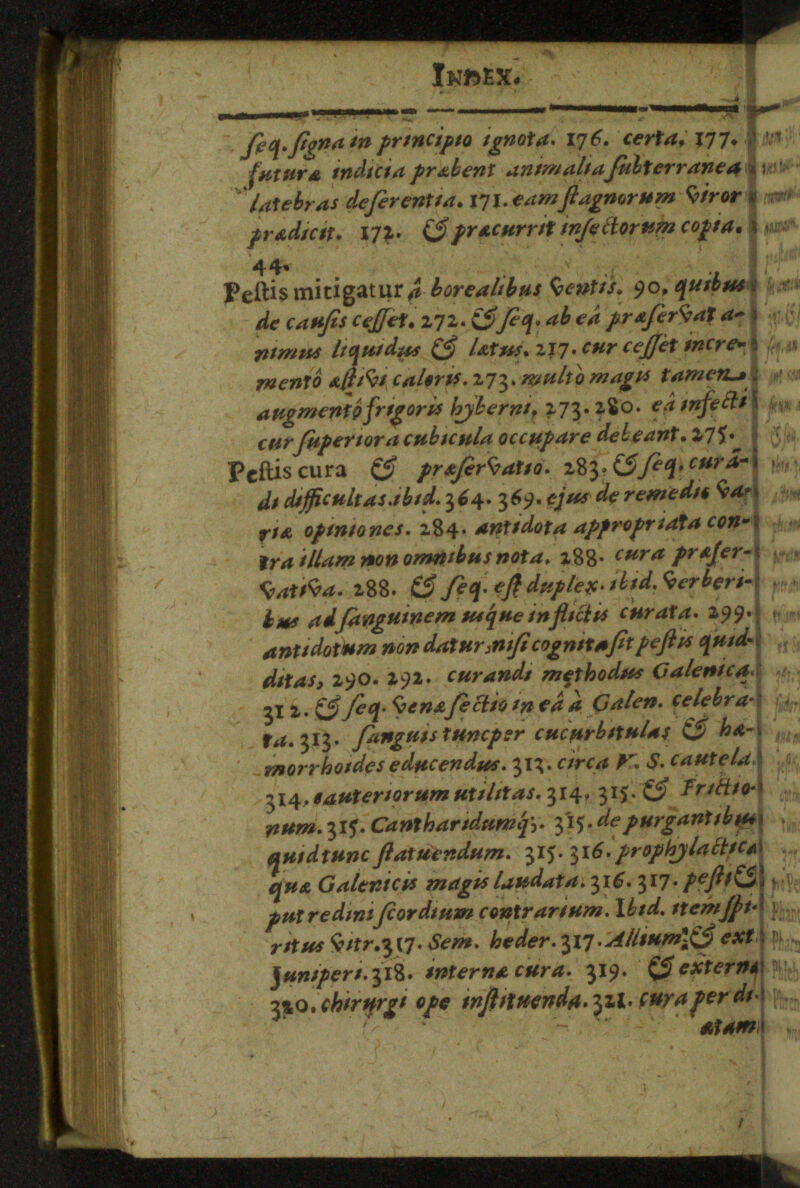 INDEX.
ſeq. ſigna in principio ignota. 176. certa, 177.
futuræ indicia præbent animalia ſubterranea
latebras deſerentia. 171. eam ſtagnorum viror
prædicit. 172. & præcurrit inſectorum copia.
44.
Peſtis mitigatur à borealibus ventis. 90. quibus
de cauſis ceſſet. 272. & ſeq. ab eâ præſervat a-
nimus liquidus & lætus. 217. cur ceſſet incre-
mentô æſtivi caloris. 273. multò magis tamen
augmentô frigoris hyberni, 273. 280. eâ infecti
cur ſuperiora cubicula occupare debeant. 275.
Peſtis cura & præſervatio. 283. & ſeq. curan-
di difficultas. ibid. 364. 369. ejus de remediis va-
riæ opiniones. 284. antidota appropriata con-
tra illam non omnibus nota. 288. cura præſer-
vativa. 288. & ſeq. eſt duplex. ibid. verberi-
bus ad ſanguinem usque inflictis curata. 299.
antidotum non datur, niſi cognita ſit peſtis quid-
ditas, 290. 292. curandi methodus Galenica.
312. & ſeq. venæ ſectio in eâ à Galen. celebra-
ta. 313. ſanguis tunc per cucurbitulas & hæ-
morrhoides educendus. 313. circa V. S. cautela.
314. cauteriorum utilitas. 314. 315. & Frictio-
num. 315. Cantharidumq;. 315. de purgantibus
quid tunc ſtatuendum. 315. 316. prophylactica
quæ Galenicis magis laudata. 316. 317. peſti &
putredini ſcordium contrarium. Ibid. item ſpi-
ritus vitr. 317. Sem. heder. 317. Allium & ext.
Juniperi. 318. interna cura. 319. & externa
320. chirurgi ope inſtituenda. 321. cura per di-
ætam